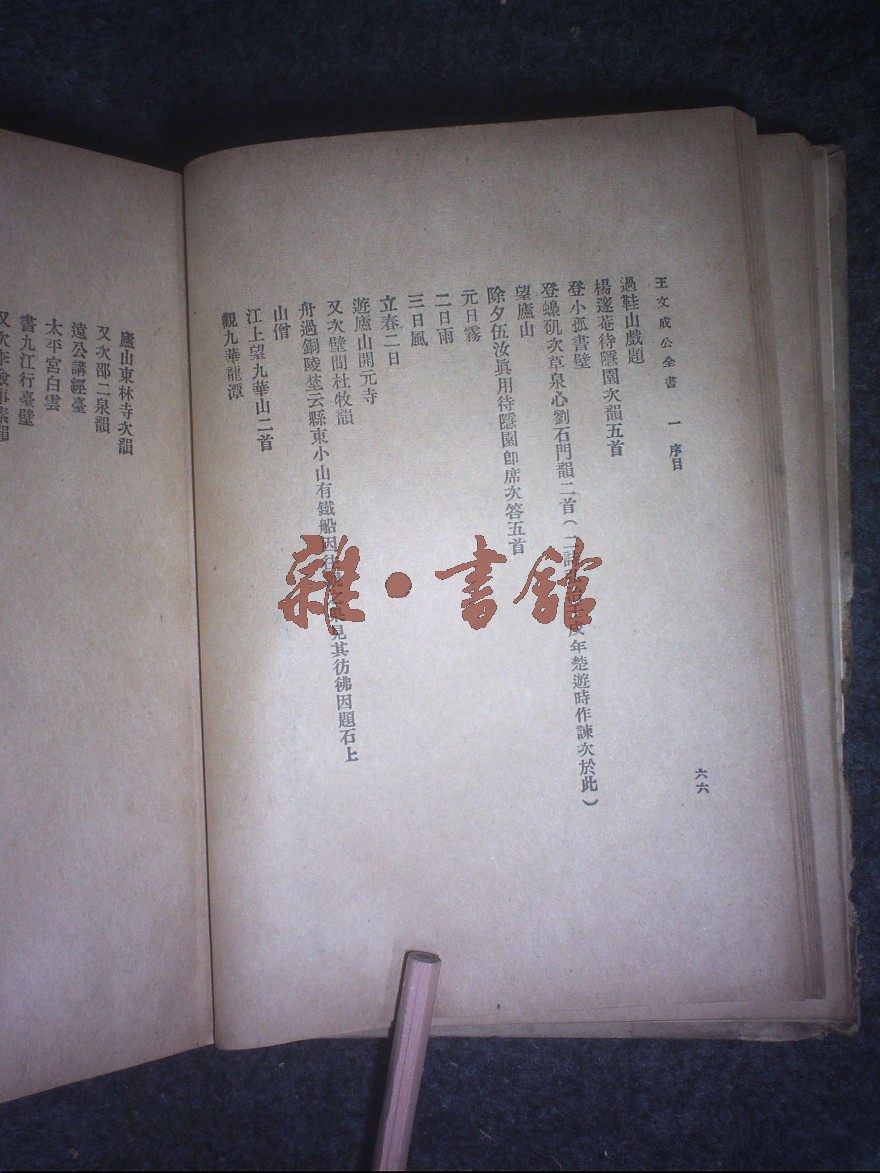 王文成公全書 一 序目
六六
過鞋山戲題
楊邃菴待隱園次韻五首
登小孤書壁
登蟂磯次草泉心劉石門韻二首(二詩 年楚遊時作諫次於此)
望廬山
除夕伍汝眞用待隱園卽席次答五首
元日霧
二日雨
三日風
立春二日
遊廬山開元寺
又次壁間杜牧韻
舟過銅陵埜云縣東小山有鐵船因往 見其彷彿因題石上
山僧
江上望九華山二首
觀九華龍潭
廬山東林寺次韻
又次邵二泉韻
遠公講經臺
太平宮白雲
書九江行臺壁
又次李僉事素韻
雜·書館